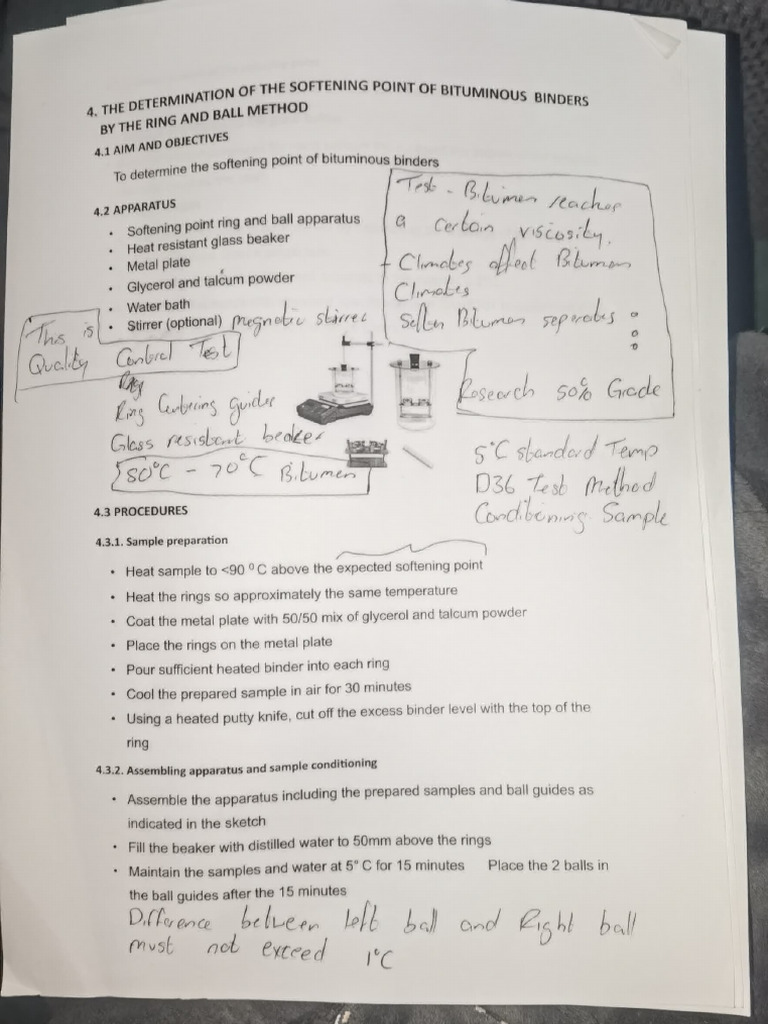 4. THE DETERMINATION OF THE SOFTENING POINT OF BITUMINOUS BINDERS
BY THE RING AND BALL METHOD
4.1 AIM AND OBJECTIVES
To determine the softening point of bituminous binders
4.2 APPARATUS
• Softening point ring and ball apparatus
• Heat resistant glass beaker
• Metal plate
• Glycerol and talcum powder
• Water bath
• Stirrer (optional) megnetic stirrer
Test - Bitumen reaches
a certain viscosity.
+ Climates affect Bitumen
Climates
Bitumen separates
Research 50% Grade
This is
Quality Control Test
Ring Centering guides
Glass resistant beaker
50°C - 70°C Bitumen
5°C standard Temp
D36 Test Method
Conditioning Sample
4.3 PROCEDURES
4.3.1. Sample preparation
• Heat sample to <90 ⁰ C above the expected softening point
• Heat the rings so approximately the same temperature
• Coat the metal plate with 50/50 mix of glycerol and talcum powder
• Place the rings on the metal plate
• Pour sufficient heated binder into each ring
• Cool the prepared sample in air for 30 minutes
• Using a heated putty knife, cut off the excess binder level with the top of the
ring
4.3.2. Assembling apparatus and sample conditioning
• Assemble the apparatus including the prepared samples and ball guides as
indicated in the sketch
• Fill the beaker with distilled water to 50mm above the rings
• Maintain the samples and water at 5° C for 15 minutes Place the 2 balls in
the ball guides after the 15 minutes
Difference between left ball and Right ball
must not exceed 1°C